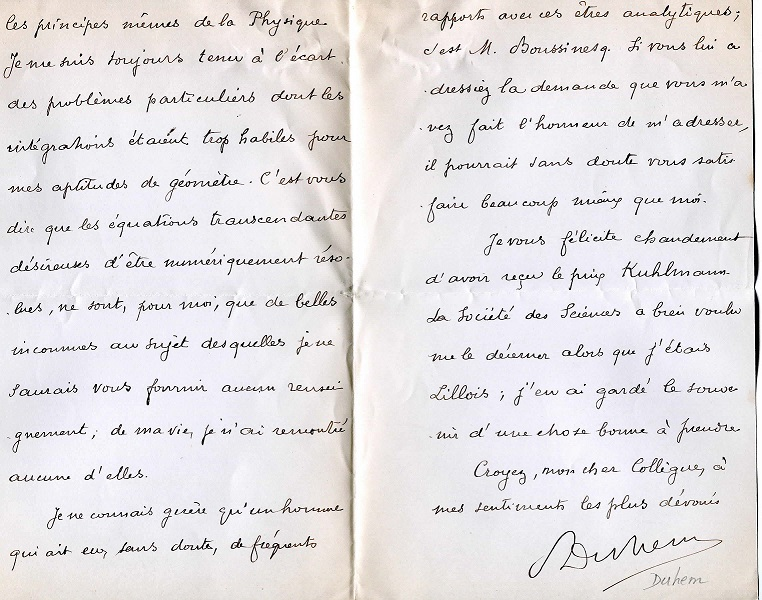 les principes mêmes de la Physique
Je me suis toujours tenu à l'écart
des problèmes particuliers dont les
intégrations étaient trop habiles pour
mes aptitudes de géomètre. C'est vous
dire que les équations transcendantes
désireuses d'être numériquement réso-
-lues, ne sont, pour moi, que de belles
inconnues au sujet desquelles je ne
saurais vous fournir aucun rensei
-gnement; de ma vie, je n'ai rencontré
aucune d'elles.
Je ne connais guère qu'un homme
qui ait eu, sans doute, de fréquents
rapports avec ces êtres analytiques;
c'est M. Boussinesq. Si vous lui a
-dressiez la demande que vous m'a
-vez fait l'honneur de m'adresser,
il pourrait sans doute vous satis
-faire beaucoup mieux que moi.
Je vous félicite chaudement
d'avoir reçu le prix Kuhlmann.
La Société des Sciences a bien voulu
me le décerner alors que j'étais
Lillois; j'en ai gardé le souve
-nir d'une chose bonne à prendre
Croyez, mon cher Collègue, à
mes sentiments les plus dévoués
Duhem
Duhem